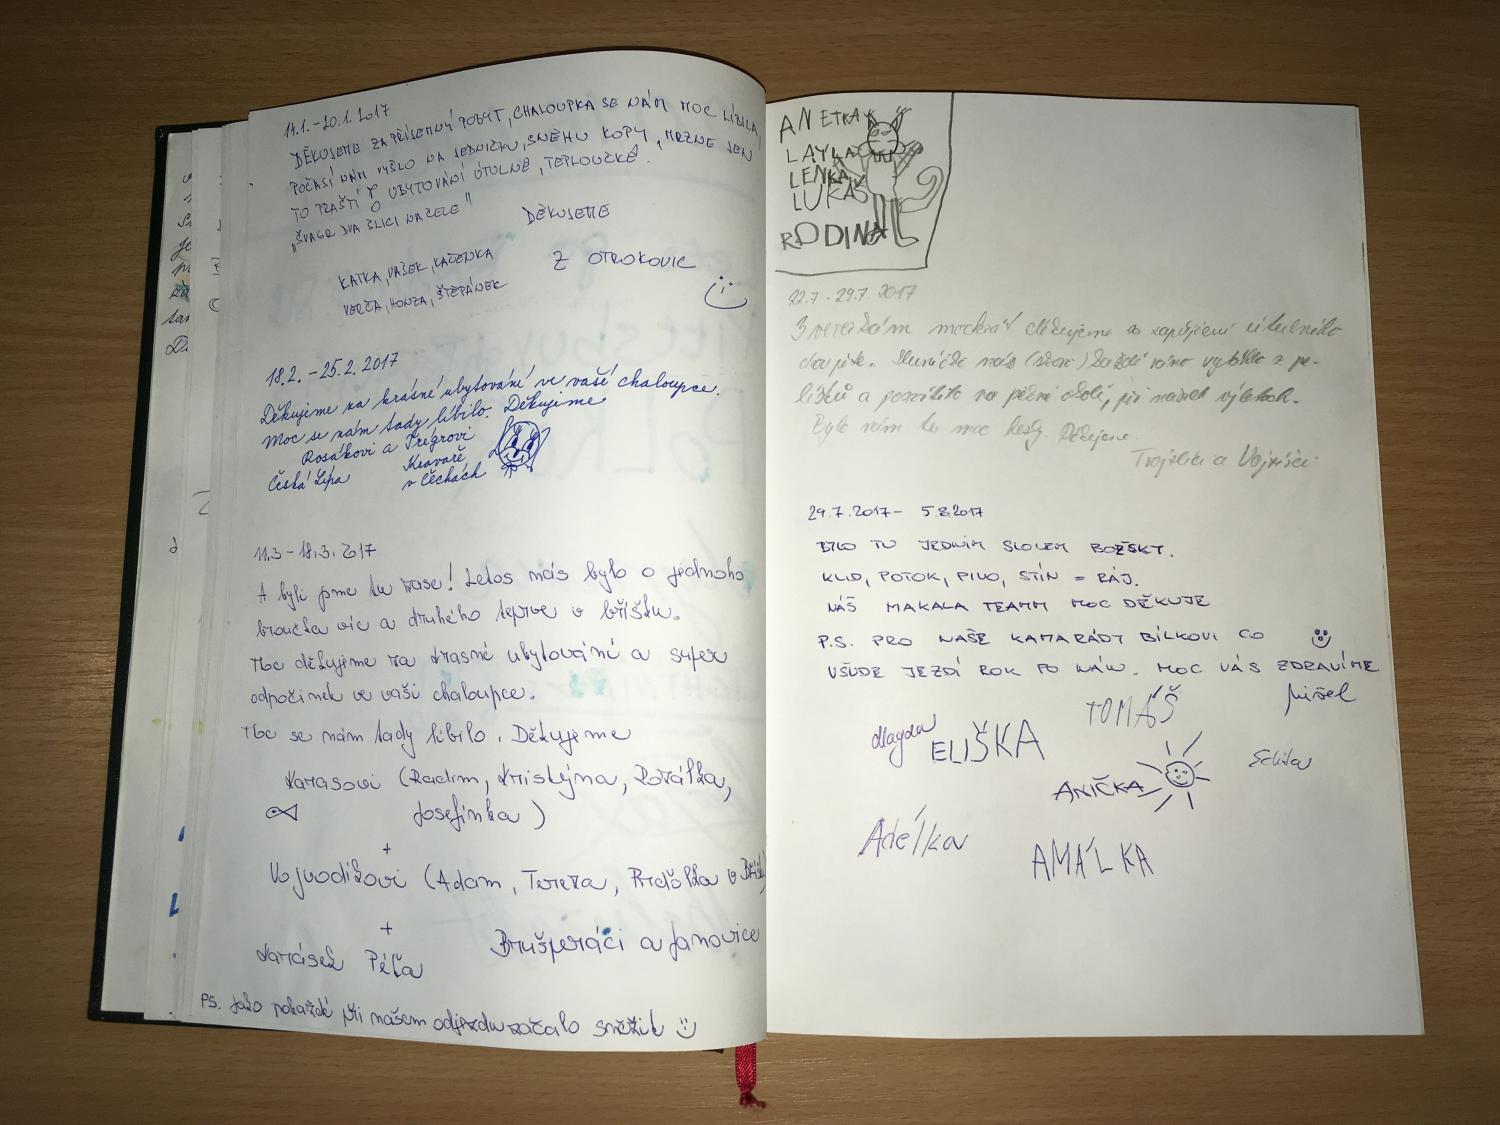 14.1. - 20.1. 2017
DĚKUJEME ZA PŘÍJEMNÝ POBYT, CHALOUPKA SE NÁM MOC LÍBILA,
POČASÍ NÁM VYŠLO NA JEDNIČKU, SNĚHU KOPY, MRZNE JEN
TO PRAŠTÍ UBYTOVÁNÍ ÚTULNÉ, TEPLOUČKÉ.
"ŠVAGR DVA ŠLICI NA ČELE"
DĚKUJEME
KATKA, VAŠEK, KAČENKA
Z OTROKOVIC
VERČA, HONZA, ŠTĚPÁNEK
18.2. - 25.2. 2017
Děkujeme za krásné ubytování ve vaší chaloupce.
Moc se nám tady líbilo. Děkujeme
Rosákovi a Trégrovi
Česká Lípa
Kravaře
v Čechách
11.3 - 18.3. 2017
A byli jsme tu zase! Letos nás bylo o jednoho
broučka víc a druhého teprve v bříšku.
Moc děkujeme za krásné ubytování a super
odpočinek ve vaší chaloupce.
Moc se nám tady líbilo. Děkujeme
Karasovi (Radim, Kristýna, Rozálka,
Josefínka)
+
Vojvodíkovi (Adam, Tereza, v
+
Karásek Péťa
a Janovice
PS. Jako pokaždé při našem odjezdu začalo sněžit
ANETKA
LAYLA
LENKA
LUKÁŠ
RODINA
22.7 - 29.7 2017
mockrát děkujeme za zapůjčení útulného
doupěte. Sluníčko nás každé ráno vytáhlo z pe-
líšků a posvítilo na pěkné okolí, při našich výletech.
Bylo nám tu moc hezky. Děkujeme.
a
29.7.2017 - 5.8.2017
BYLO TU JEDNÍM SLOVEM BOŽSKY.
KLID, POTOK, PIVO, STÍN = RÁJ.
NÁŠ MAKALA TEAMM MOC DĚKUJE
P.S. PRO NAŠE KAMARÁDY BÍLKOVI CO
VŠUDE JEZDÍ ROK PO NÁM. MOC VÁS ZDRAVÍME
Mišel
TOMÁŠ
Magda
ELIŠKA
ANIČKA
Adélka
AMÁLKA